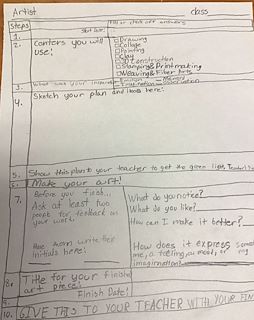 Artist class
Steps fill or check off answers
1. Start Date:
2. Centers you will use:
□ Drawing
□ Collage
□ Painting
□ Clay
□ 3D Construction
□ Stamping & Printmaking
□ Weaving & Fiber Arts
3. What was your
4. Sketch your plan and ideas here:
5. Show this plan to your teacher to get the green light. Teacher
6. Make your art!
7. Before you finish...
Ask at least two people for feedback on your work.
Have them write their initials here:
What do you notice?
What do you like?
How can I make it better?
How does it express
me, a feeling, or mood, or
imagination?
8. Title for your finished art piece:
Finish Date:
9.
10. GIVE THIS TO YOUR TEACHER WITH YOUR FIN